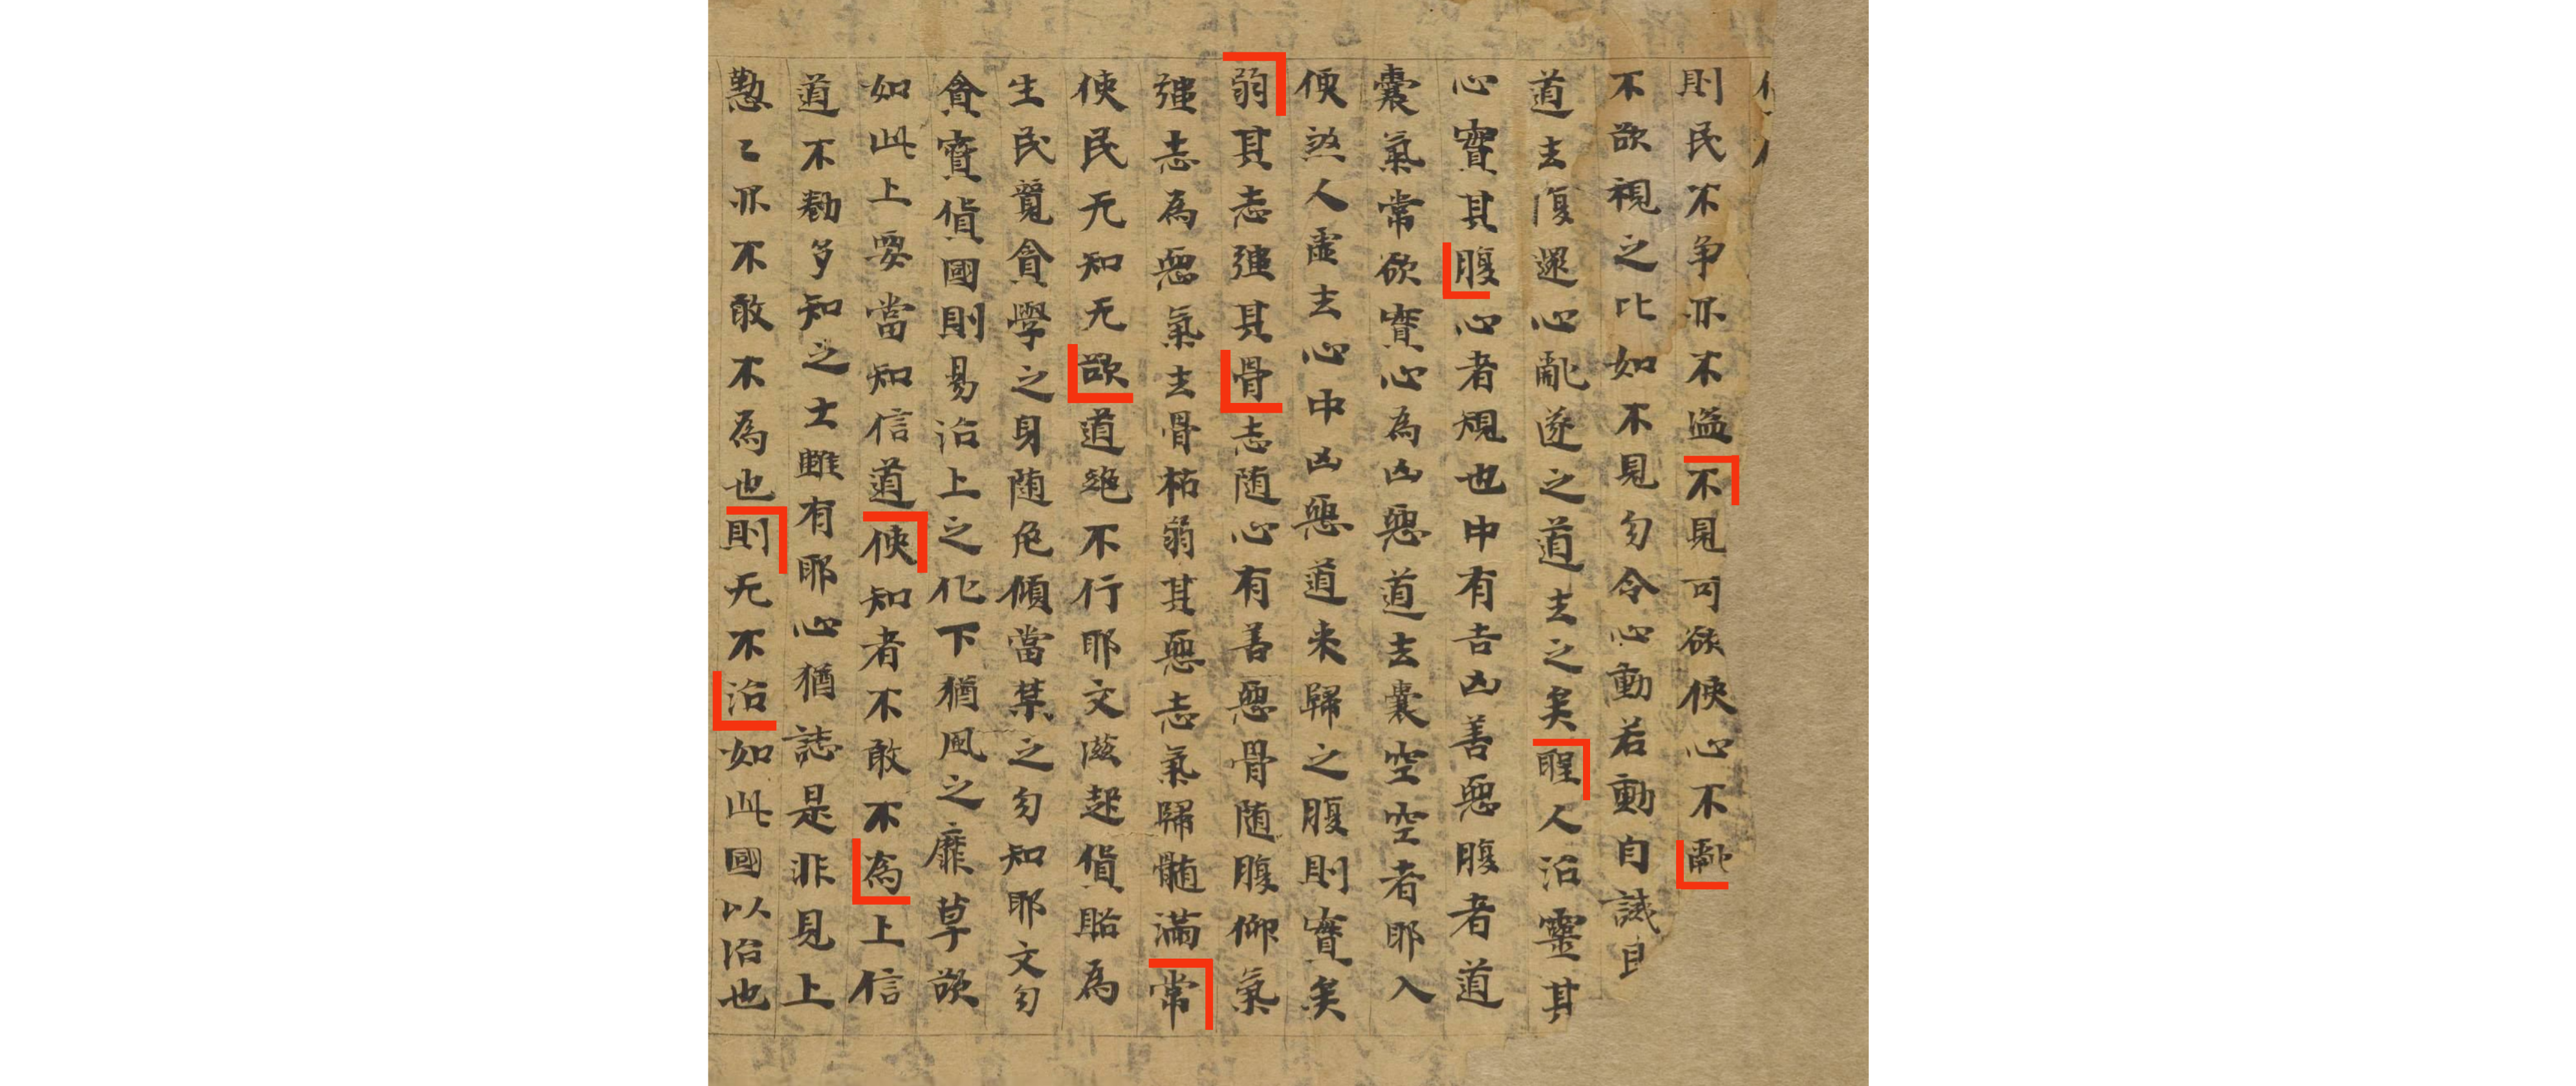 則民不争亦不盗不見可欲使心不亂
不欲視之比如不見勿令心動若動自誡
道去復還心亂遂之道去之矣聖人治靈其
心實其腹心者規也中有吉凶善惡腹者道
囊氣常欲實心為凶惡道去囊空空者耶入
便煞人虛去心中凶惡道来歸之腹則實矣
弱其志強其骨志随心有善惡骨随腹仰氣
強志為惡氣去骨枯弱其惡志氣歸髓滿常
使民无知无欲道絶不行耶文滋起貨賂為
生民覓貪學之身随危傾當禁之勿知耶文勿
貪寶貨國則易治上之化下猶風之靡草欲
如此上要當知信道使知者不敢不為上信
道不勌多知之士雖有耶心猶誌是非見上
懃〻亦不敢不為也則无不治如此國以治也